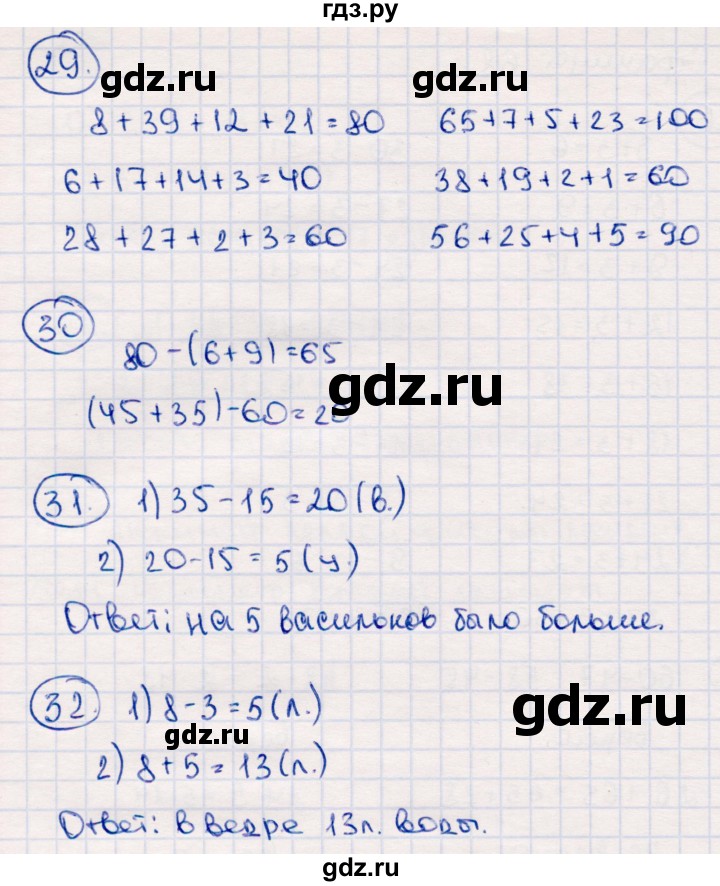 гдз.ру
29.
gdz.ru gdz.ru
8+39+12+21=80 65+7+5+23=100
6+17+14+3=40 38+19+2+1=60
28+27+2+3=60 56+25+4+5=90
30
80-(6+9)=65
gdz.ru
(45+35)-60=20
31. 1) 35-15=20(в.)
2) 20-15=5(ч.)
Ответ: на 5 васильков было больше.
32. 1) 8-3=5(л.)
gdz.ru
gdz.ru
2) 8+5=13(л.)
Ответ: в ведре 13л. воды.
gdz.ru